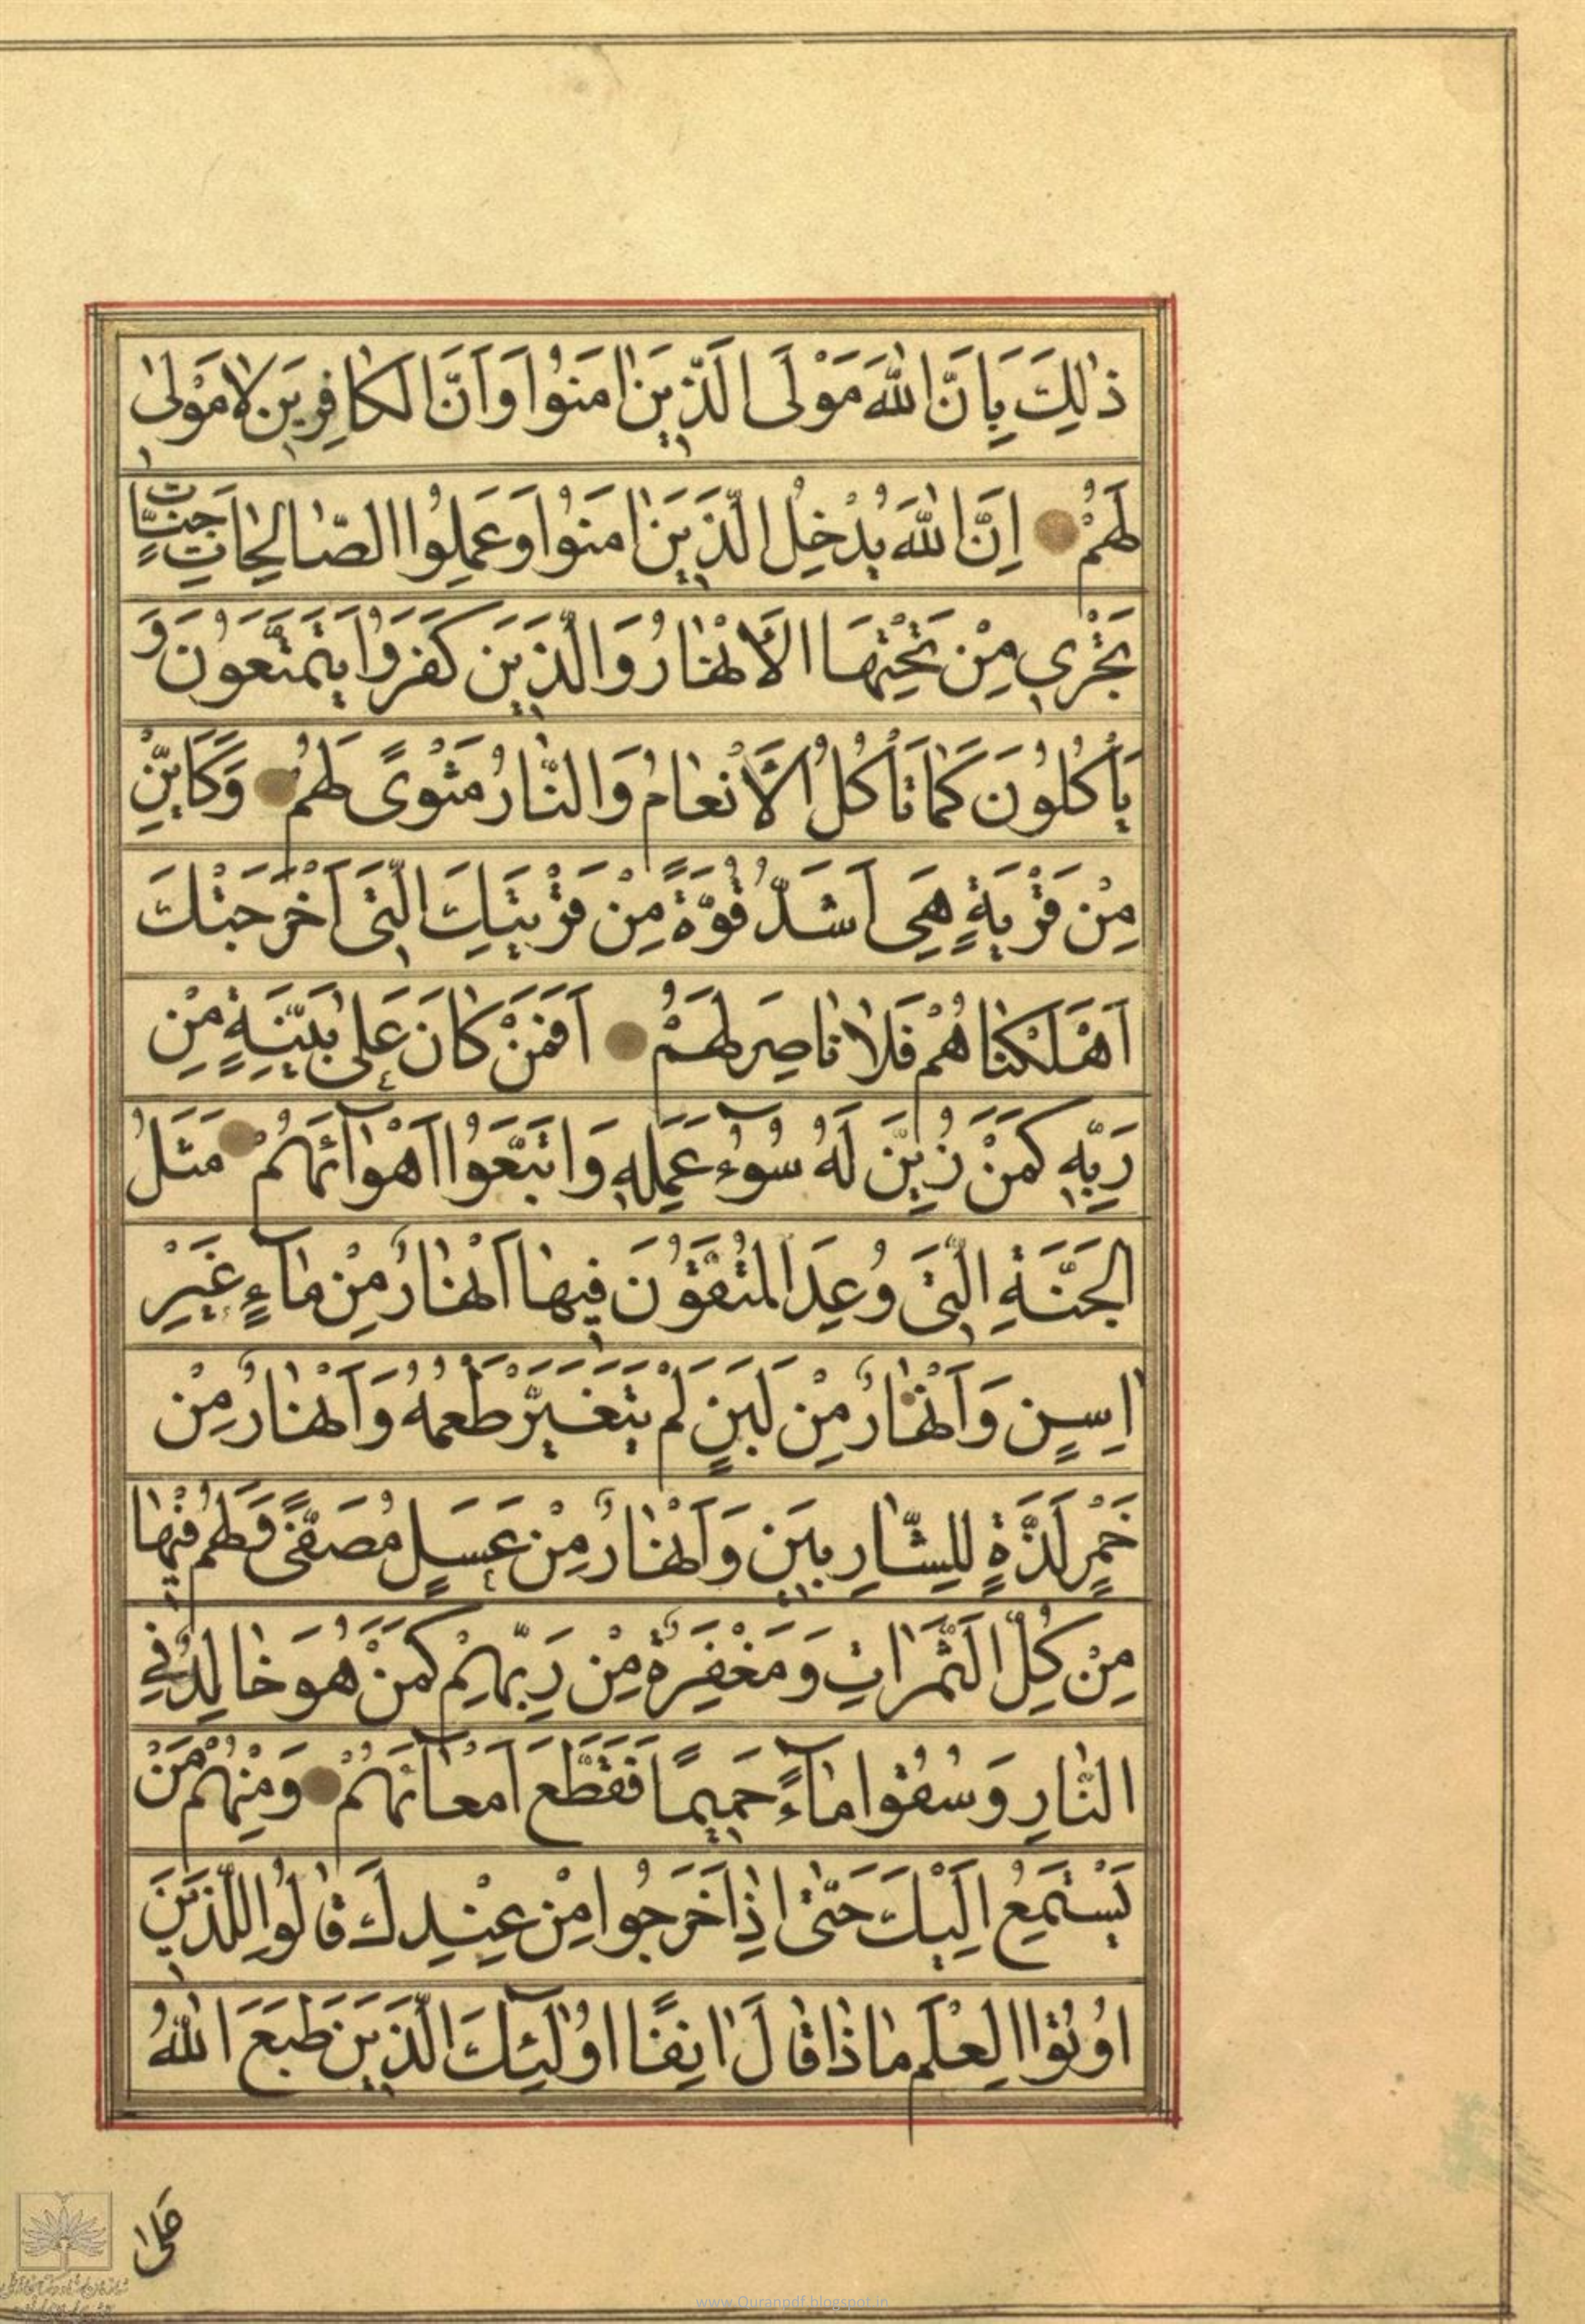 ذٰلِكَ بِاَنَّ اللّٰهَ مَوْلَى الَّذِينَ اٰمَنُوا وَاَنَّ الْكٰافِرِينَ لٰا مَوْلٰى
لَهُمْ اِنَّ اللّٰهَ يُدْخِلُ الَّذِينَ اٰمَنُوا وَعَمِلُوا الصّٰالِحٰاتِ جَنّٰاتٍ
تَجْرِي مِنْ تَحْتِهَا الْاَنْهٰارُ وَالَّذِينَ كَفَرُوا يَتَمَتَّعُونَ وَ
يَأْكُلُونَ كَمٰا تَأْكُلُ الْاَنْعٰامُ وَالنّٰارُ مَثْوًى لَهُمْ وَكَاَيِّنْ
مِنْ قَرْيَةٍ هِيَ اَشَدُّ قُوَّةً مِنْ قَرْيَتِكَ الَّتِي اَخْرَجَتْكَ
اَهْلَكْنٰاهُمْ فَلٰا نٰاصِرَ لَهُمْ اَفَمَنْ كٰانَ عَلٰى بَيِّنَةٍ مِنْ
رَبِّهِ كَمَنْ زُيِّنَ لَهُ سُوۤءُ عَمَلِهِ وَاتَّبَعُوا اَهْوٰاۤئَهُمْ مَثَلُ
الْجَنَّةِ الَّتِي وُعِدَ الْمُتَّقُونَ فِيهٰا اَنْهٰارٌ مِنْ مٰاۤءٍ غَيْرِ
اٰسِنٍ وَاَنْهٰارٌ مِنْ لَبَنٍ لَمْ يَتَغَيَّرْ طَعْمُهُ وَاَنْهٰارٌ مِنْ
خَمْرٍ لَذَّةٍ لِلشّٰارِبِينَ وَاَنْهٰارٌ مِنْ عَسَلٍ مُصَفًّى وَلَهُمْ فِيهٰا
مِنْ كُلِّ الثَّمَرٰاتِ وَمَغْفِرَةٌ مِنْ رَبِّهِمْ كَمَنْ هُوَ خٰالِدٌ فِي
النّٰارِ وَسُقُوا مٰاۤءً حَمِيمًا فَقَطَّعَ اَمْعٰاۤئَهُمْ وَمِنْهُمْ مَنْ
يَسْتَمِعُ اِلَيْكَ حَتّٰى اِذٰا خَرَجُوا مِنْ عِنْدِكَ قٰالُوا لِلَّذِينَ
اُوتُوا الْعِلْمَ مٰاذٰا قٰالَ اٰنِفًا اُولٰۤئِكَ الَّذِينَ طَبَعَ اللّٰهُ
عَلٰى
www.Quranpdf.blogspot.in